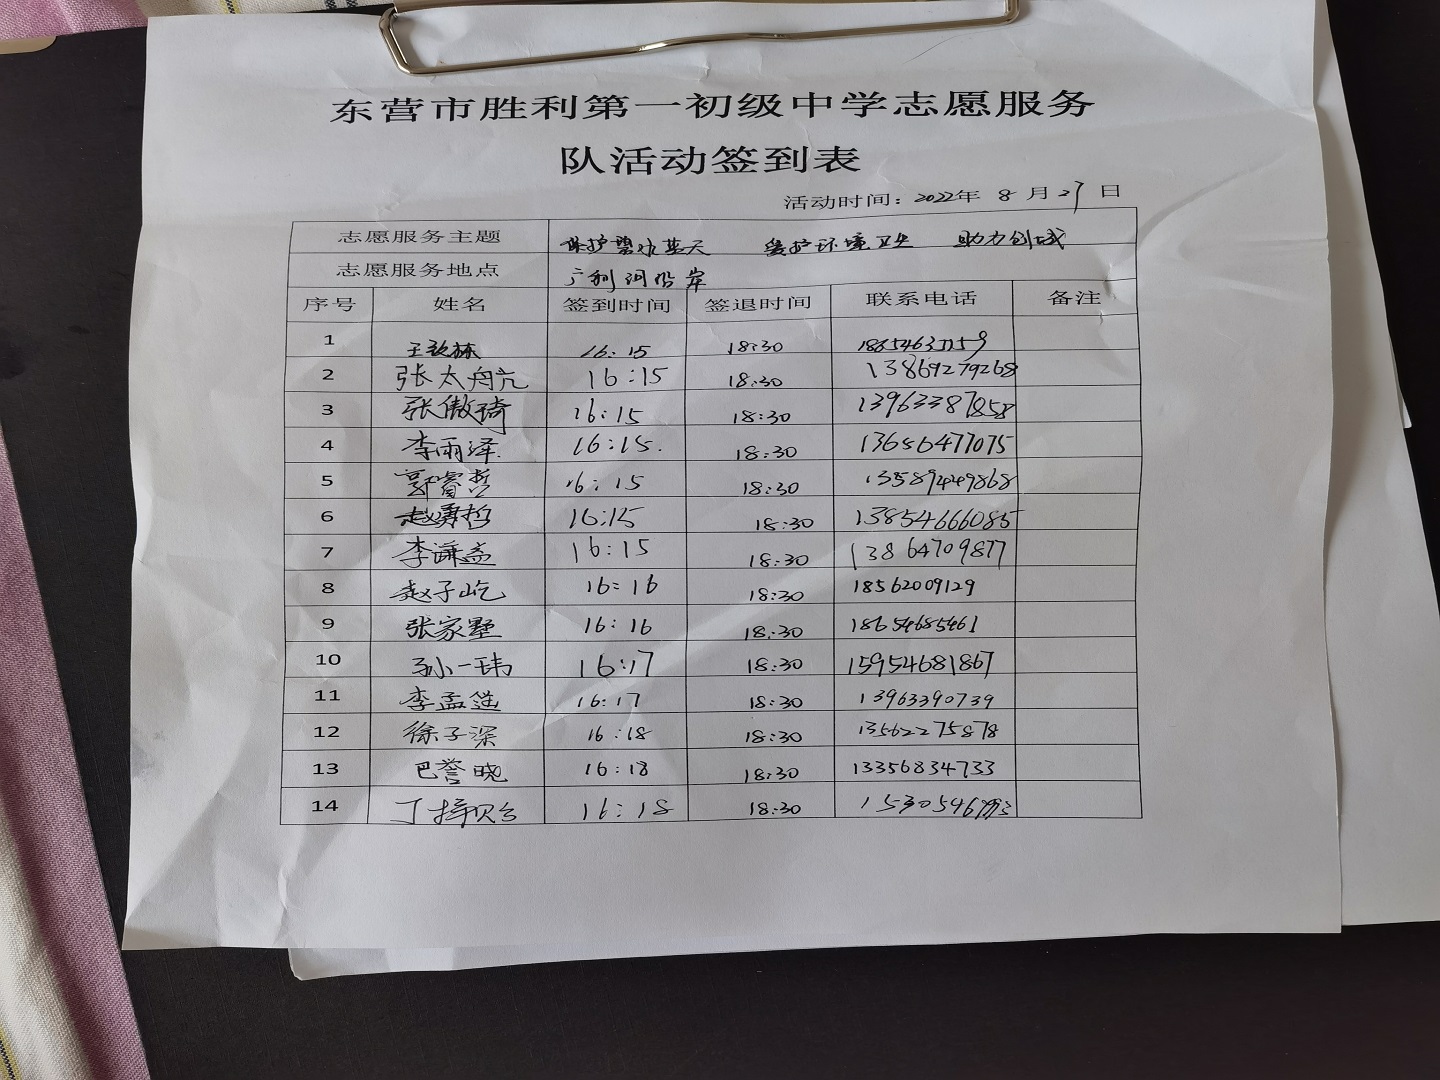 东营市胜利第一初级中学志愿服务
队活动签到表
活动时间：2022年 8 月 27 日
志愿服务主题 保护碧水蓝天 爱护环境卫生 助力创城
志愿服务地点 广利河沿岸
序号 姓名 签到时间 签退时间 联系电话 备注
1 16:15 18:30
2 张太舟亢 16:15 18:30 13869279268
3 张傲琦 16:15 18:30 13963387858
4 李雨泽 16:15 18:30 13656477075
5 郭睿哲 16:15 18:30 13589449868
6 赵勇哲 16:15 18:30 13854666085
7 李谦益 16:15 18:30 13864709877
8 赵子屹 16:16 18:30 18562009129
9 张家墅 16:16 18:30 18654685461
10 孙一玮 16:17 18:30 15954681867
11 李孟 16:17 18:30 13963390739
12 徐子深 16:18 18:30 13562275878
13 巴誉晓 16:18 18:30 13356834733
14 丁 16:18 18:30